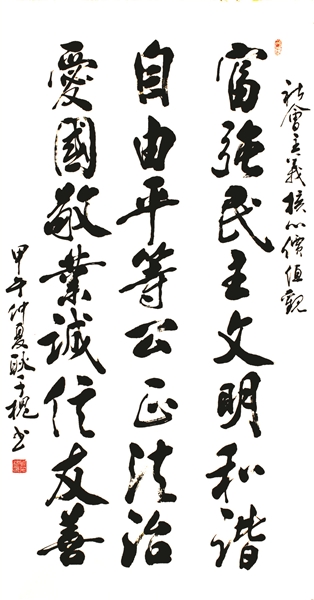 社會主義核心價值觀
富強民主文明和諧
自由平等公正法治
愛國敬業誠信友善
甲午仲夏耿子槐書